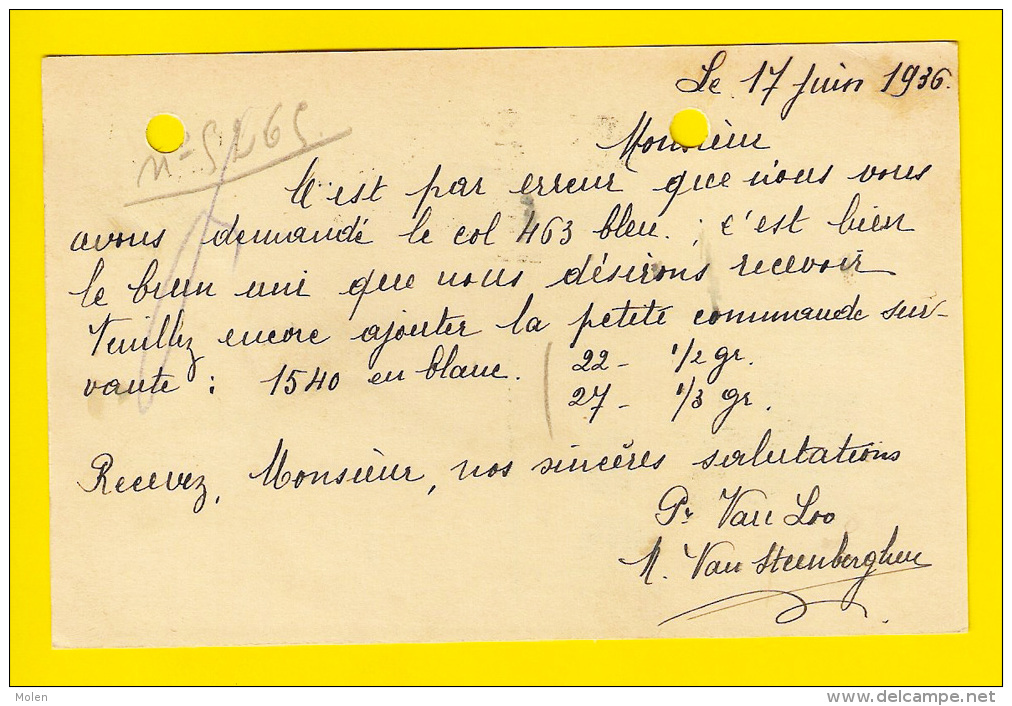 Le 17 juin 1936.
Monsieur
C'est par erreur que nous vous
avons demandé le col 463 bleu. ; c'est bien
le brun uni que nous désirons recevoir
Veuillez encore ajouter la petite commande sui-
vante : 1540 en blanc. 22 - 1/2 gr.
27 - 1/3 gr.
Recevez, Monsieur, nos sincères salutations
Pr Van Loo
M. Van Steenberghen
Molen
www.delcampe.net